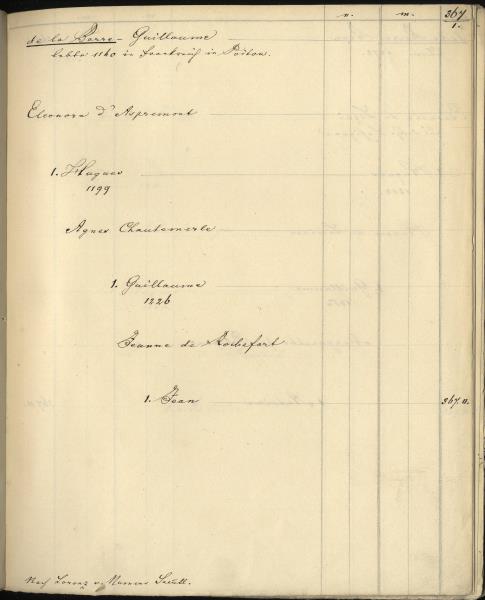 n. m. 367
1.
de la Barre - Guillaume
lebte 1140 in Frankreich in Poitou.
Eleonora d'Aspremont
1. Hugues
1199
Agnes Chautemerle
1. Guillaume
1226
Jeanne de Rochefort
1. Jean 367.n.
Nach Lorenz v.